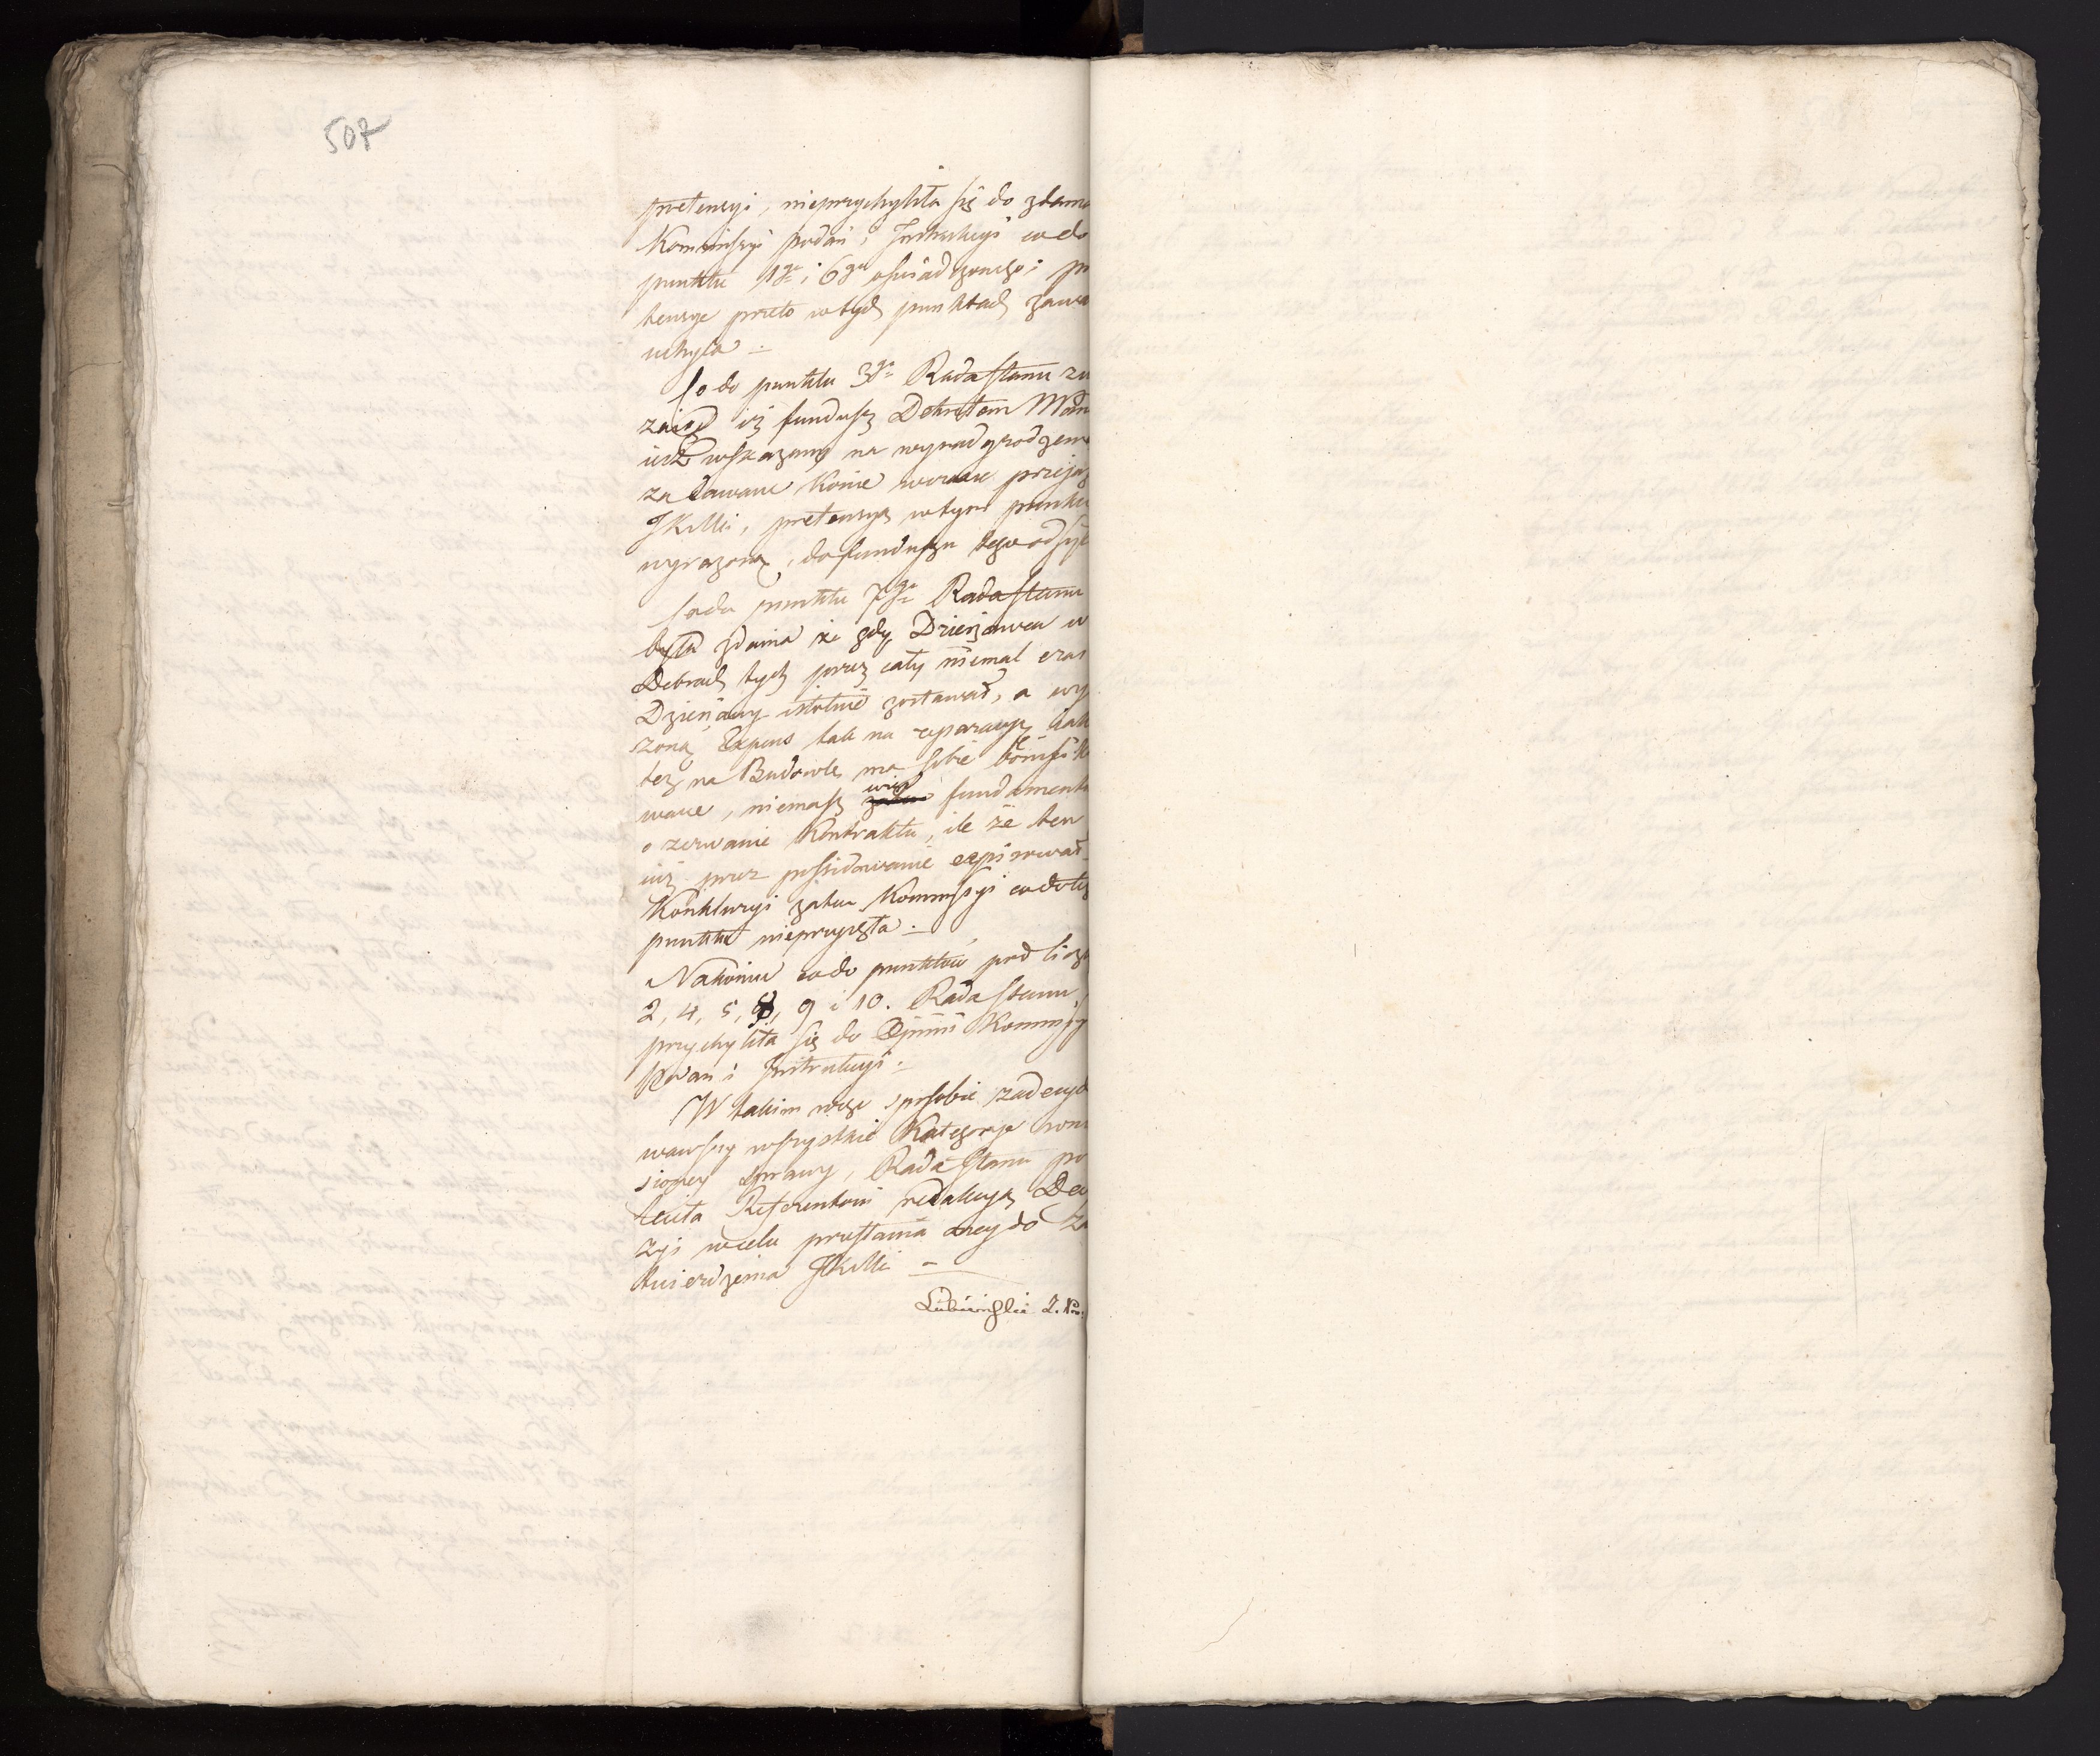 507
pretensyi, nieprzychyliła się do zdania
Kommissyi Podań i Instrukcyi co do
punktu 1go i 6go oświadczonego; pre
tensye przeto w tych punktach zawa
uchyla —
Co do punktu 3go Rada Stanu zu
iż fundusz Dekretem
iest wskazany na wynadgrodzenie
za dawane konie w czasie przejaz
JKMci, pretensyą w tym punkcie
wyrażoną, do funduszu tego odsyła
Co do punktu 7go Rada Stanu
była zdania że gdy Dzierżawca w
Dobrach tych przez cały niemal czas
Dzierżawy istotnie zostawał, a wy
szoną Expens tak na reparacyę jako
też na Budowlę ma sobie bonifiko
wane, niemasz więc fundamentu
o zerwanie Kontraktu, ile że ten
iuż przez possidowanie expirował
Konkluzyi zatem Kommissyi co do tego
punktu nieprzyięła —
Nakoniec co do punktów pod liczb
2, 4, 5, 8, 9 i 10. Rada Stanu
przychyliła się do Opinii Kommissyi
Podań i Instrukcyi —
W takim więc sposobie zadecydo
wawszy wszystkie Kategorye wnie
sioney sprawy, Rada Stanu po
leciła Referentowi redakcyą Decy
zyi w celu przesłania oney do za
twierdzenia JKMci —